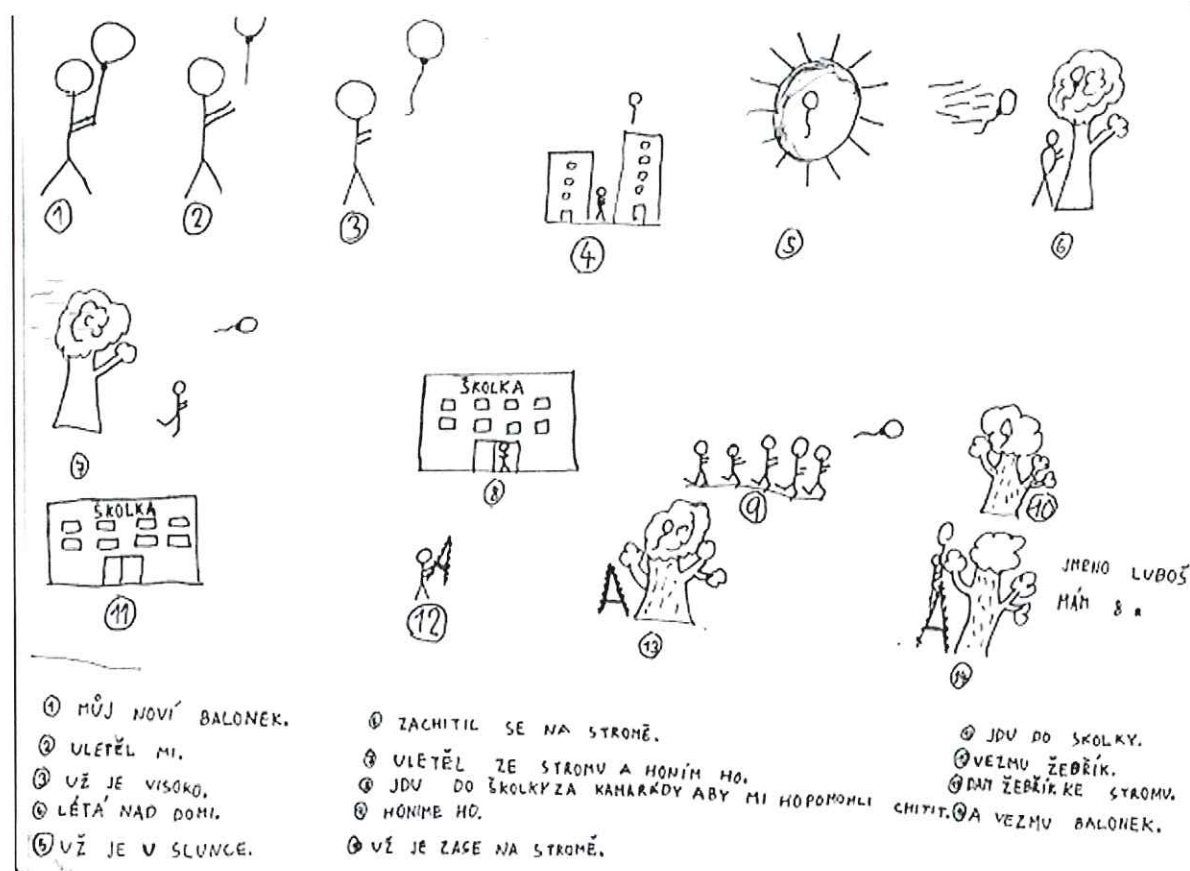 ① ② ③ ④ ⑤ ⑥
⑦
ŠKOLKA
⑧ ⑨ ⑩
ŠKOLKA
⑪ ⑫ ⑬ ⑭
JMENO LUBOŠ
MÁM 8
① MŮJ NOVÍ BALONEK.
② ULETĚL MI.
③ UŽ JE VISOKO.
④ LÉTÁ NAD DOMI.
⑤ UŽ JE V SLUNCE.
⑥ ZACHITIL SE NA STROMĚ.
⑦ ULETĚL ZE STROMU A HONÍM HO.
⑧ JDU DO ŠKOLKY ZA KAMARÁDY ABY MI HO POMOHLI CHITIT.
⑨ HONIME HO.
⑩ UŽ JE ZASE NA STROMĚ.
⑪ JDU DO ŠKOLKY.
⑫ VEZMU ŽEBŘÍK.
⑬ DAM ŽEBŘÍK KE STROMU.
⑭ A VEZMU BALONEK.